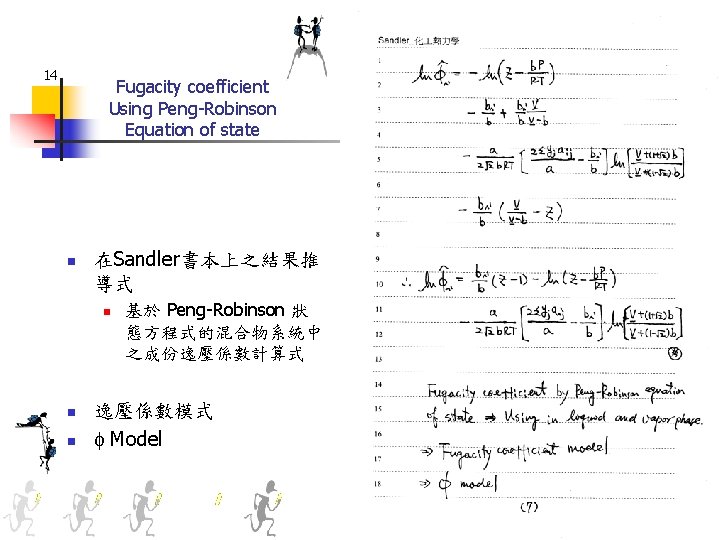 14
Fugacity coefficient
Using Peng-Robinson
Equation of state
在Sandler書本上之結果推
導式
基於 Peng-Robinson 狀
態方程式的混合物系統中
之成份逸壓係數計算式
逸壓係數模式
ϕ Model
Sandler 化工熱力學
1
2
3
4
5
6
7
8
9
10
11
12
13
14
15
16
17
18
ln Φ̂ = − ln(Z − bP/RT)
− bₙᵢ/b + bₙᵢ/b V/(V−b)
− a/(2√2 bRT) [2Σyⱼaᵢⱼ/a − bₙᵢ/b] ln[(V+(1+√2)b)/(V+(1−√2)b)]
− bₙᵢ/b (V/(V−b) − Z)
∴ ln Φ̂ = bₙᵢ/b (Z−1) − ln(Z − bP/RT)
− a/(2√2 bRT) [2Σyⱼaᵢⱼ/a − bₙᵢ/b] ln[(V+(1+√2)b)/(V+(1−√2)b)]
Fugacity coefficient by Peng-Robinson equation
of state ⇒ Using in liquid and vapor phase.
⇒ Fugacity coefficient model
⇒ ϕ model
(7)